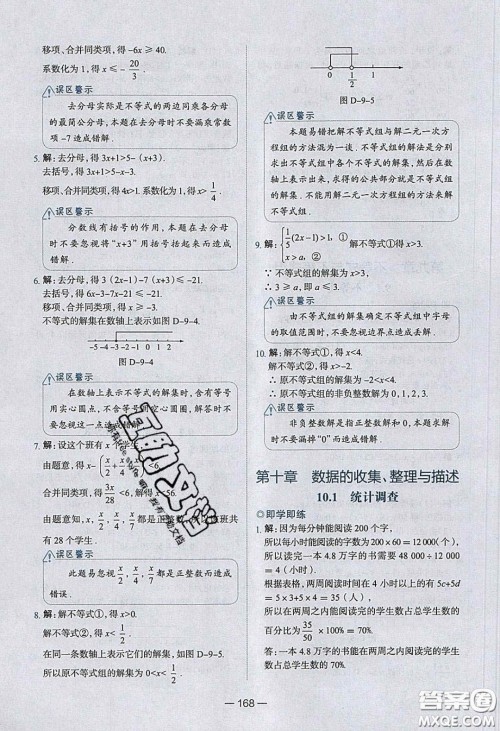 移项、合并同类项,得 -6x ≥ 40.
系数化为 1,得 x ≤ -20/3.
误区警示
去分母实际是不等式的两边同乘各分母
的最简公分母,本题在去分母时不要漏乘常数
项 -7 造成错解.
5. 解:去分母,得 3x+1>5-(x+3).
去括号,得 3x+1>5-x-3.
移项、合并同类项,得 4x>1. 系数化为 1,得 x>1/4.
误区警示
分数线有括号的作用,本题在去分母
时不要忽视将“x+3”用括号括起来而造成
错解.
6. 解:去分母,得 3(2x-1)-7x ≤ -21.
去括号,得 6x-3-7x ≤ -21.
移项、合并同类项,得
不等式的解集在数轴上表示如图 D-9-4
图 D-9-4
误区警示
在数轴上表示不等式的解集时,含有等号
用实心圆点,不含等号用空心圆圈,解答时不
要忽视这一点造成错解.
7. 解:设这个班有 x
由题意,得 x-
合并同类项,得 3x/28 <6,解得 x<56.
由题意知, x/2, x/4, x/7
有 28 个学生.
误区警示
此题易忽视 x/2, x/4, x/7 都是正整数而造成错解.
8. 解:解不等式①,得 x>0.
解不等式②,得 x<1/2.
在同一条数轴上表示它们的解集,如图 D-9-5.
所以原不等式组的解集为 0<x<1/2.
0 1/2
图 D-9-5
误区警示
本题易错把解不等式组与解二元一次方
程组的方法混为一谈. 不等式组的解法是分别
求出不等式组中各个不等式的解集,然后在数
轴上表示出来,求得的公共部分就是不等式组
的解集. 不能用解二元一次方程组的方法来解
不等式组.
9. 解: 1/5(2x-1)>1, ①
解不等式①得 x>3.
∵ 不等式组的解集为 x>3,
∴ a ≤ 3,即 a ≤ 3.
误区警示
由不等式组的解集确定不等式组中字母
的取值范围时,不要忽视边界点造成丢解.
10. 解:解不等式①,得 x<4.
∴ 原不等式组的解集为 -2<x<4.
∴ 原不等式组的非负整数解为 0, 1, 2, 3.
误区警示
非负整数解是指正整数解和 0. 本题求
解时不要漏掉“0”造成错解.
第十章 数据的收集、整理与描述
10.1 统计调查
即学即练
1. 解:因为每分钟能阅读 200 个字,
所以每小时阅读的字数为 200×60=12 000(个),
所以读完一本 4.8 万字的书需要 48 000÷12 000
=4(小时).
根据表格,两周阅读时间在 4 小时以上的有 5c+5d
=5×3+5×4=35(人),
所以在两周之内能阅读完的学生数占总学生数的
百分比为 35/50×100%=70%.
答:一本 4.8 万字的书能在两周之内阅读完的学生
数占总学生数的 70%.
168
互助文档
答案圈
MXQE.COM